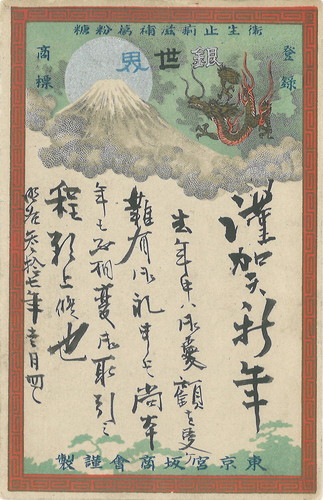 衛生止滋補粉糖
登録
商標
銀世界
謹賀新年
去年中ハ御愛顧を
難有御礼申尚本
年も不相變御取引之
程願上候也
明治参拾七年壱月
東京宮坂商會謹製